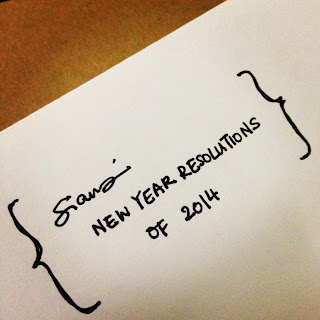 NEW YEAR RESOLUTIONS
OF 2014